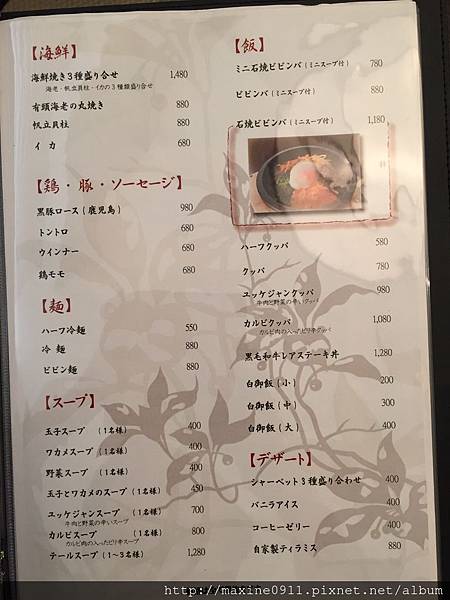 【海鮮】
海鮮焼き3種盛り合せ 1,480
海老・帆立貝柱・イカの3種類盛り合せ
有頭海老の丸焼き 880
帆立貝柱 880
イカ 680
【鶏・豚・ソーセージ】
黒豚ロース(鹿児島) 980
トントロ 680
ウインナー 680
鶏モモ 680
【麺】
ハーフ冷麺 550
冷麺 880
ビビン麺 880
【スープ】
玉子スープ (1名様) 400
ワカメスープ (1名様) 400
野菜スープ (1名様) 400
玉子とワカメのスープ(1名様) 450
ユッケジャンスープ (1名様) 700
牛肉と野菜の辛いスープ
カルビスープ (1名様) 800
カルビ肉の入ったピリ辛スープ
テールスープ(1〜3名様) 1,280
【飯】
ミニ石焼ビビンバ(ミニスープ付) 780
ビビンバ(ミニスープ付) 880
石焼ビビンバ(ミニスープ付) 1,180
ハーフクッパ 580
クッパ 780
ユッケジャンクッパ 980
牛肉と野菜の辛いクッパ
カルビクッパ 1,080
カルビ肉の入ったピリ辛クッパ
黒毛和牛レアステーキ丼 1,280
白御飯(小) 200
白御飯(中) 300
白御飯(大) 400
【デザート】
シャーベット3種盛り合わせ 400
バニラアイス 400
コーヒーゼリー 400
自家製ティラミス 880
http://maxine0911.pixnet.net/album